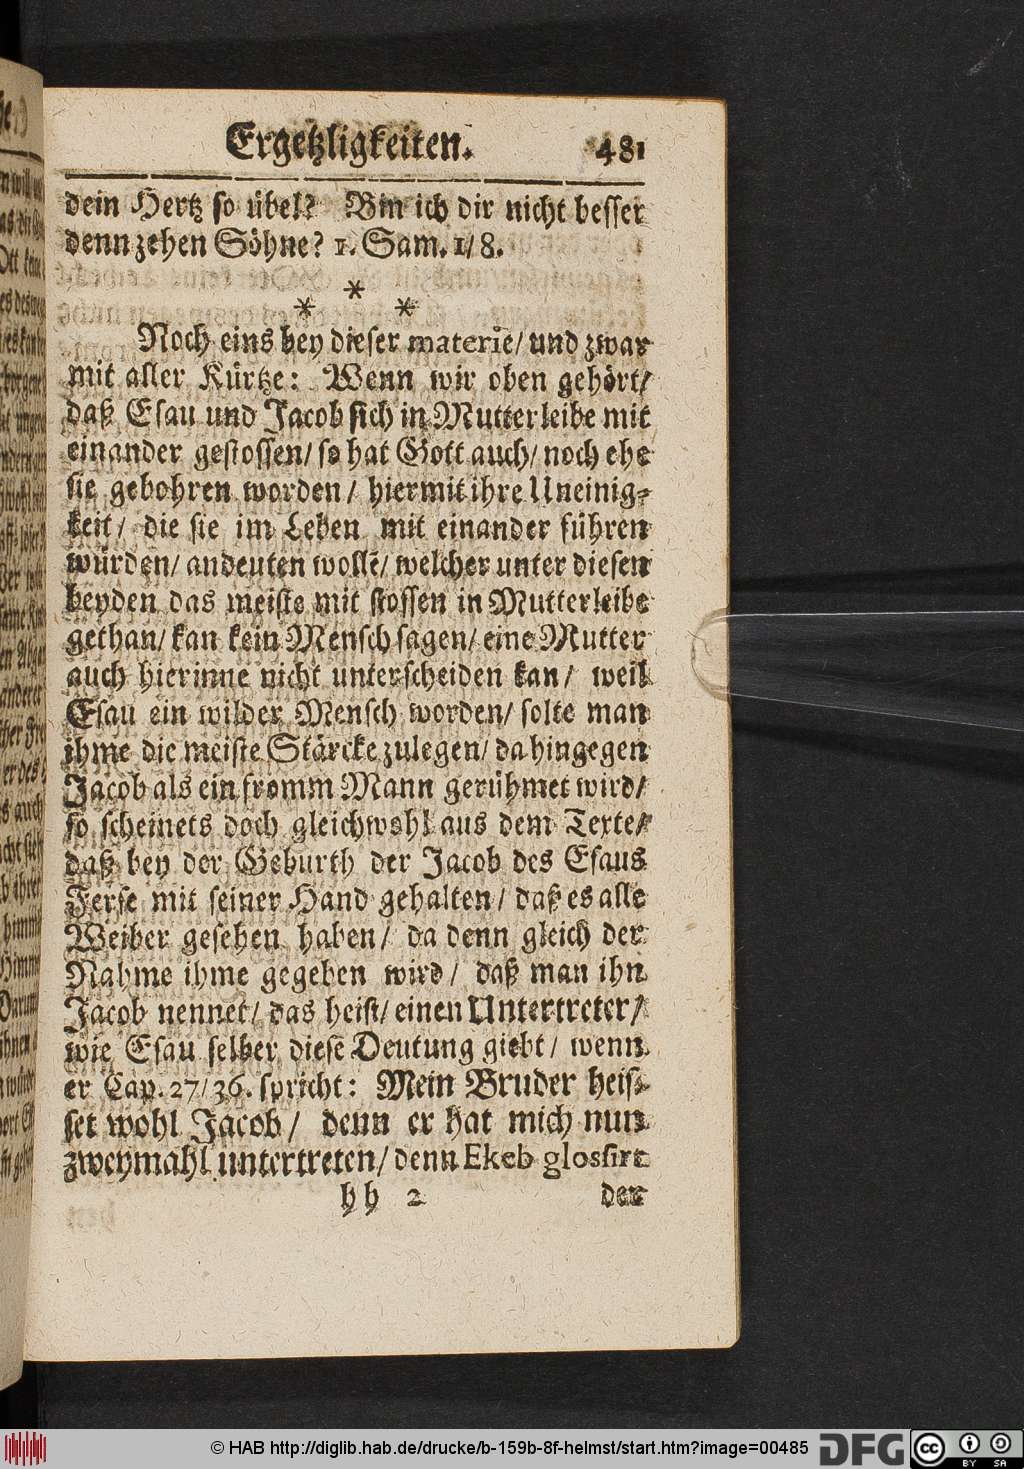 Ergetzligkeiten. 481
dein Hertz so übel? Bin ich dir nicht besser
denn zehen Söhne? 1. Sam. 1/8.
* * *
Noch eins bey dieser materie/ und zwar
mit aller Kürtze: Wenn wir oben gehört/
daß Esau und Jacob sich in Mutterleibe mit
einander gestossen/ so hat Gott auch/ noch ehe
sie gebohren worden/ hiermit ihre Uneinig-
keit/ die sie im Leben mit einander führen
würden/ andeuten wollē/ welcher unter diesen
beyden das meiste mit stossen in Mutterleibe
gethan/ kan kein Mensch sagen/ eine Mutter
auch hierinne nicht unterscheiden kan/ weil
Esau ein wilder Mensch worden/ solte man
ihme die meiste Stärcke zulegen/ da hingegen
Jacob als ein fromm Mann gerühmet wird/
so scheinets doch gleichwohl aus dem Texte/
daß bey der Geburth der Jacob des Esaus
Ferse mit seiner Hand gehalten/ daß es alle
Weiber gesehen haben/ da denn gleich der
Nahme ihme gegeben wird/ daß man ihn
Jacob nennet/ das heist/ einen Untertreter/
wie Esau selber diese Deutung giebt/ wenn
er Cap. 27/36. spricht: Mein Bruder heis-
set wohl Jacob/ denn er hat mich nun
zweymahl untertreten/ denn Ekeb glossirt
hh 2 der
© HAB http://diglib.hab.de/drucke/b-159b-8f-helmst/start.htm?image=00485
DFG
cc BY SA